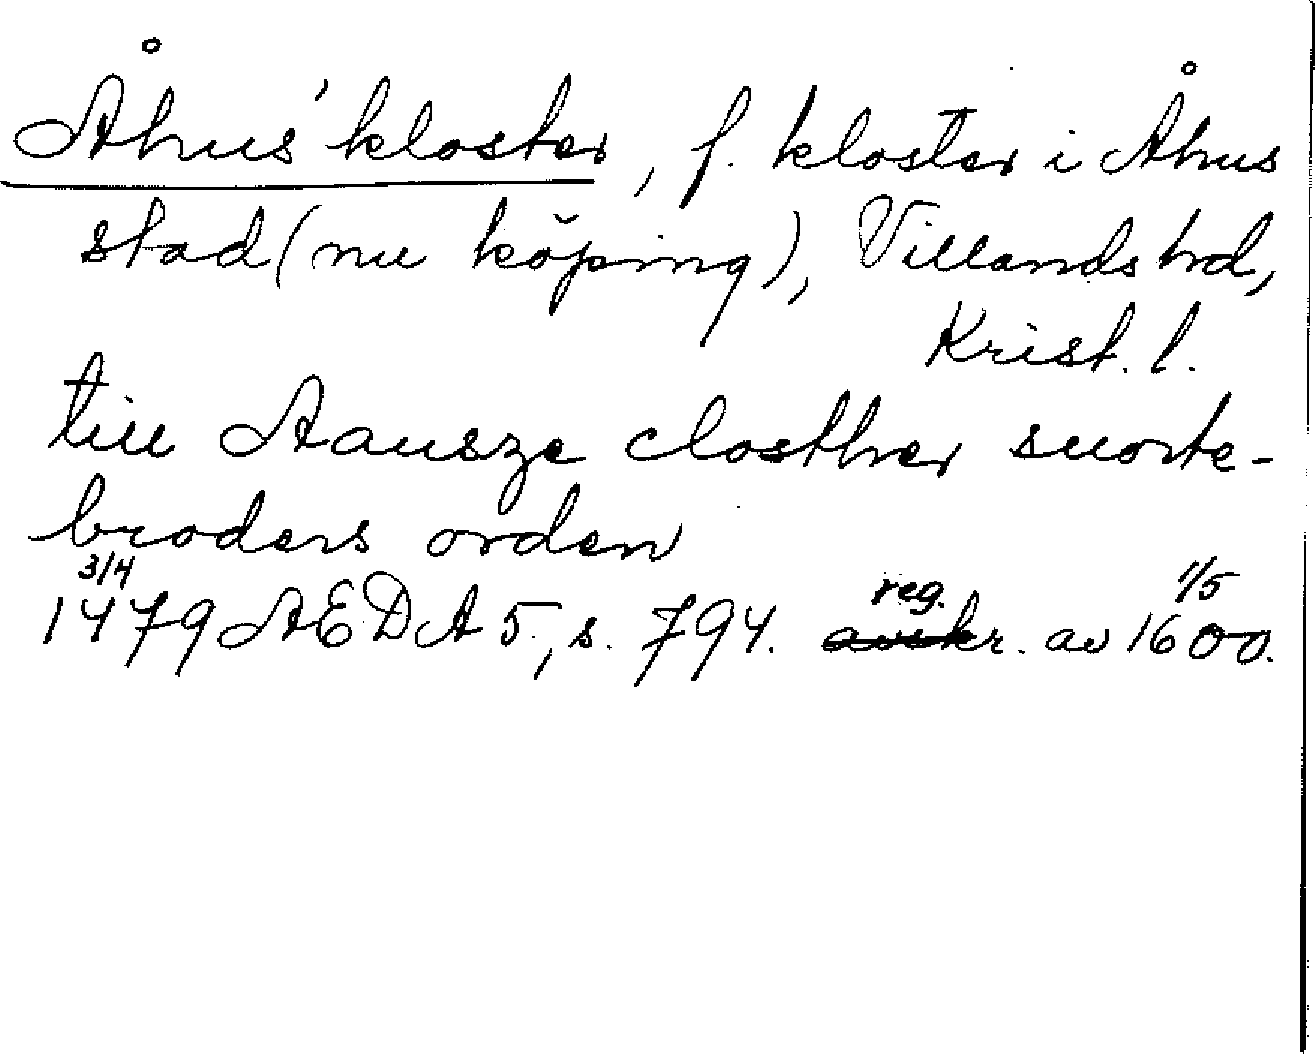 Åhus' kloster, f. kloster i Åhus
stad (nu köping), Villands hd,
Krist. l.
till Aausze closther suorte-
broders orden
3/4 reg. 1/5
1479 AEDA 5, s. 794. avskr. av 1600.